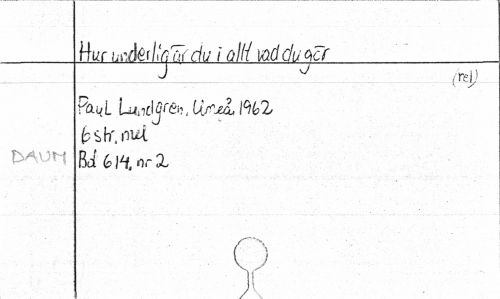 Hur underlig är du i allt vad du gör
(rel)
Paul Lundgren, Umeå, 1962
6 str, mel
DAUM
Bd 614, nr 2